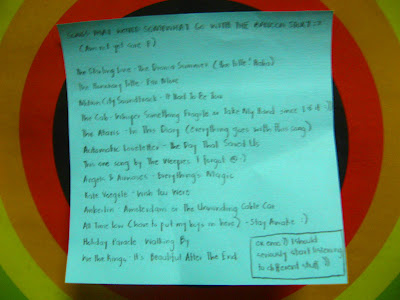 SONGS THAT WOULD SOMEWHAT GO WITH THE
(Am not yet sure
The Starting Line - The Drama Summer (the title! Haha)
The Runaway
Motion City Soundtrack - It Had To Be You
The Cab - Whisper Something Fragile or Take My Hand since I
The Ataris - In This Diary (everything goes with this song)
Automatic Loveletter - The Day That Saved Us
This one song by The Weepies I forgot @ :)
Angels & Airwaves - Everything's Magic
Kate Voegele - Wish You Were
Anberlin - Amsterdam or The Unwinding Cable Car
All Time Low (have to put my boys in here) - Stay Awake :)
Holiday Parade - Walking By
We The Kings - It's Beautiful After The End
OK emc )) I should
seriously start listening
to different stuff ))